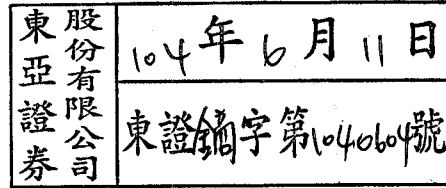 東亞證券
股份有限公司
104年6月11日
東證字第1040604號